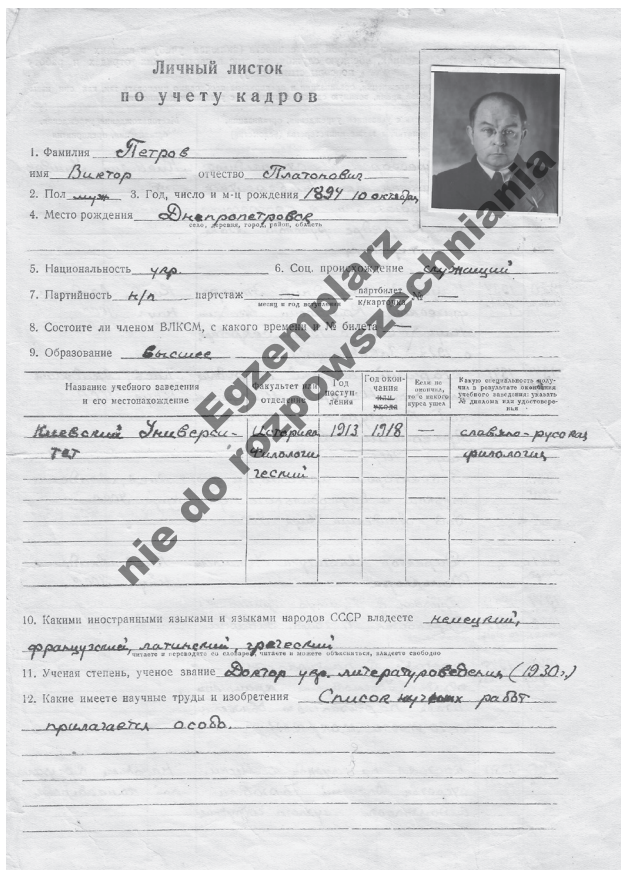 Личный листок
по учету кадров
1. Фамилия Петров
имя Виктор отчество Платонович
2. Пол муж 3. Год, число и м-ц рождения 1894 10 октября
4. Место рождения Днепропетровск
село, деревня, город, район, область
5. Национальность укр. 6. Соц. происхождение служащий
7. Партийность н/п партстаж — партбилет к/карточка № —
месяц и год вступления
8. Состоите ли членом ВЛКСМ, с какого времени и № билета —
9. Образование высшее
Название учебного заведения и его местонахождение
Факультет или отделение
Год поступления
Год окончания или ухода
Если не окончил, то с какого курса ушел
Какую специальность получил в результате окончания учебного заведения: указать № диплома или удостоверения
Киевский Универси- Историко 1913 1918 — славяно-русская
тет филологи филология
ческий
10. Какими иностранными языками и языками народов СССР владеете немецкий,
французский, латинский, греческий
читаете и переводите со словарем, читаете и можете объясняться, владеете свободно
11. Ученая степень, ученое звание Доктор укр. литературоведения (1930 г.)
12. Какие имеете научные труды и изобретения Список научных работ
прилагается особо.
Egzemplarz
nie do rozpowszechniania